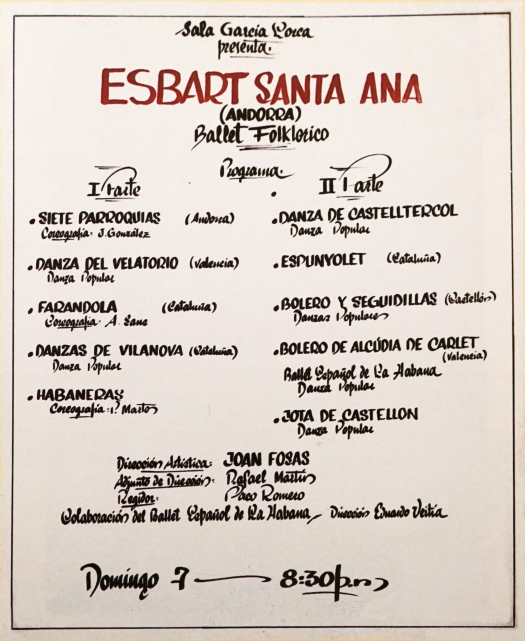 Sala García Lorca
presenta.
ESBART SANTA ANA
(ANDORRA)
Ballet Folklorico
Programa.
I Parte
• SIETE PARROQUIAS (Andorra)
Coreografia: J. González
• DANZA DEL VELATORIO (Valencia)
Danza Popular
• FARANDOLA (Cataluña)
Coreografia: A. Sans
• DANZAS DE VILANOVA (Cataluña)
Danza Popular
• HABANERAS
Coreografia: Martos
II Parte
• DANZA DE CASTELLTERCOL
Danza Popular
• ESPUNYOLET (Cataluña)
• BOLERO Y SEGUIDILLAS (Castellón)
Danzas Populares
• BOLERO DE ALCÚDIA DE CARLET
(Valencia)
Ballet Español de La Habana
Danza Popular
• JOTA DE CASTELLON
Danza Popular
Dirección Artística: JOAN FOSAS
Adjunto de Dirección: Rafael Martos
Regidor: Paco Romero
Colaboración del Ballet Español de La Habana / Dirección Eduardo Veitía
Domingo 7 — 8:30 p.m.